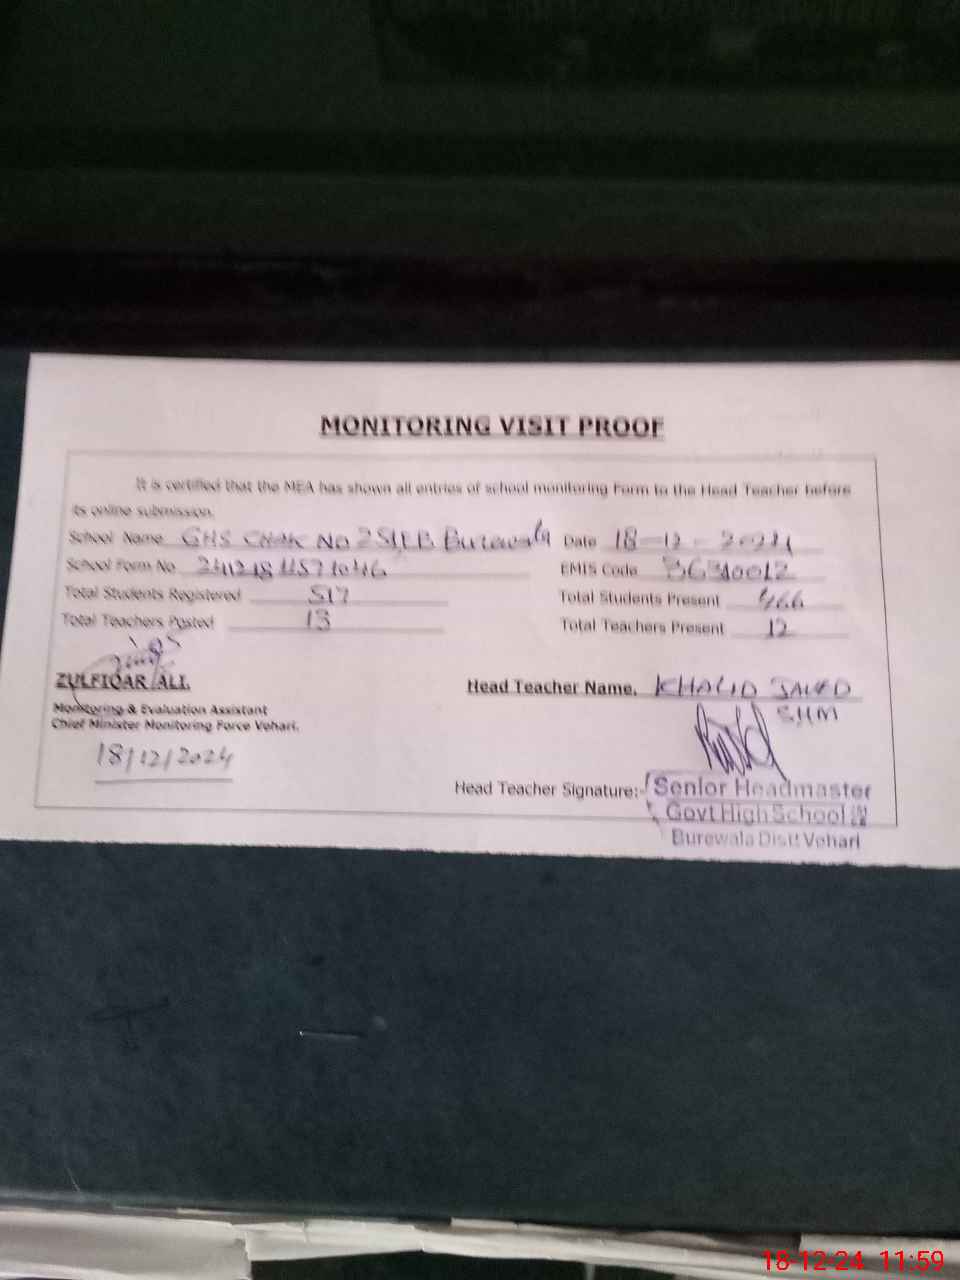 MONITORING VISIT PROOF
It is certified that the MEA has shown all entries of school monitoring Form to the Head Teacher before
its online submission.
School Name GHS CHAK NO 251,EB Burewala Date 18-12-2024
School Form No EMIS Code
Total Students Registered 517 Total Students Present 466
Total Teachers Posted 13 Total Teachers Present 12
ZULFIQAR ALI. Head Teacher Name. KHALID JAVED
Monitoring & Evaluation Assistant SHM
Chief Minister Monitoring Force Vehari.
18/12/2024
Head Teacher Signature:- Senior Headmaster
Govt High School
Burewala Distt Vehari
18-12-24 11:59